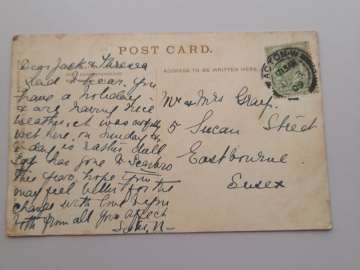 POST CARD.
ADDRESS TO BE WRITTEN HERE
ACTON W
09
Dear Jack & Theresa
Glad to hear you
have a holiday
& are having nice
weather, it was awfully
wet here, on Sunday &
to day is rather dull
has gone to Scarbro
this hope you
may feel better for the
change with love to you
both from all your affect
Mr & Mrs Gray.
5 Susan Street
Eastbourne
Sussex